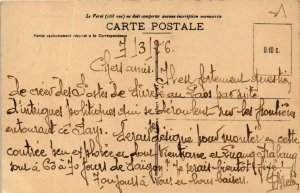 Le Verso (côté vue) ne doit comporter aucune inscription manuscrite
CARTE POSTALE
Partie exclusivement réservée à la Correspondance
7/3/26
0.10 c.
Chers amis. Il est fortement question
de créer des Postes de Sureté au Laos par suite
d'intrigues politiques qui se déroulent sur les frontières
entourant ce Pays. Je serais désigné pour monter en cette
contrée peu explorée et dont Vientiane et Luang Prabang
sont à 60 à 70 jours de Saigon. Je serais bientôt
Toujours à Vous et bons baisers.